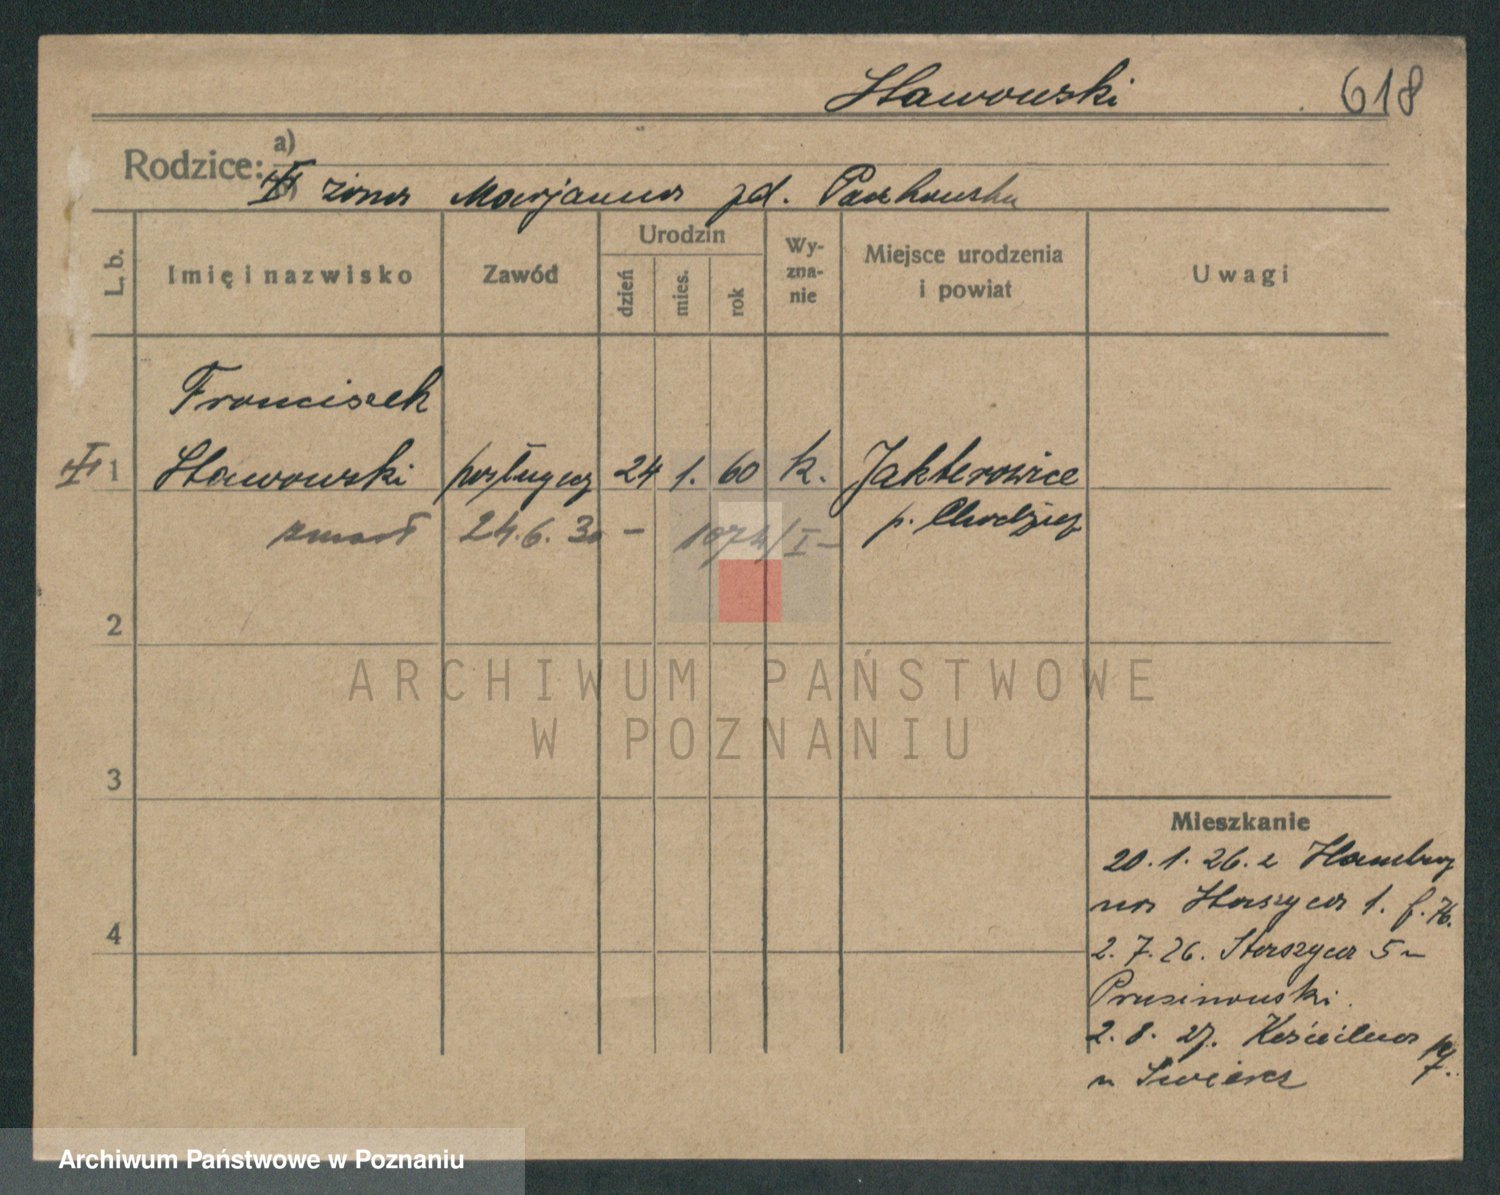 Sławowski 618
Rodzice: a)
żona Marjanna zd.
L. b.
Imię i nazwisko
Zawód
Urodzin
dzień
mies.
rok
Wy-
zna-
nie
Miejsce urodzenia
i powiat
Uwagi
Franciszek
1 Sławowski posługacz 24 1. 60 k. Jakterowice
p. Chodzież
zmarł 24.6.30 – 1074/I –
2
3
4
Mieszkanie
20.1.26. z Hamburg
na Staszyca 1.
2.7.26. Staszyca 5
Prusinowski.
2.8.27. Kościelna
ARCHIWUM PAŃSTWOWE
W POZNANIU
Archiwum Państwowe w Poznaniu